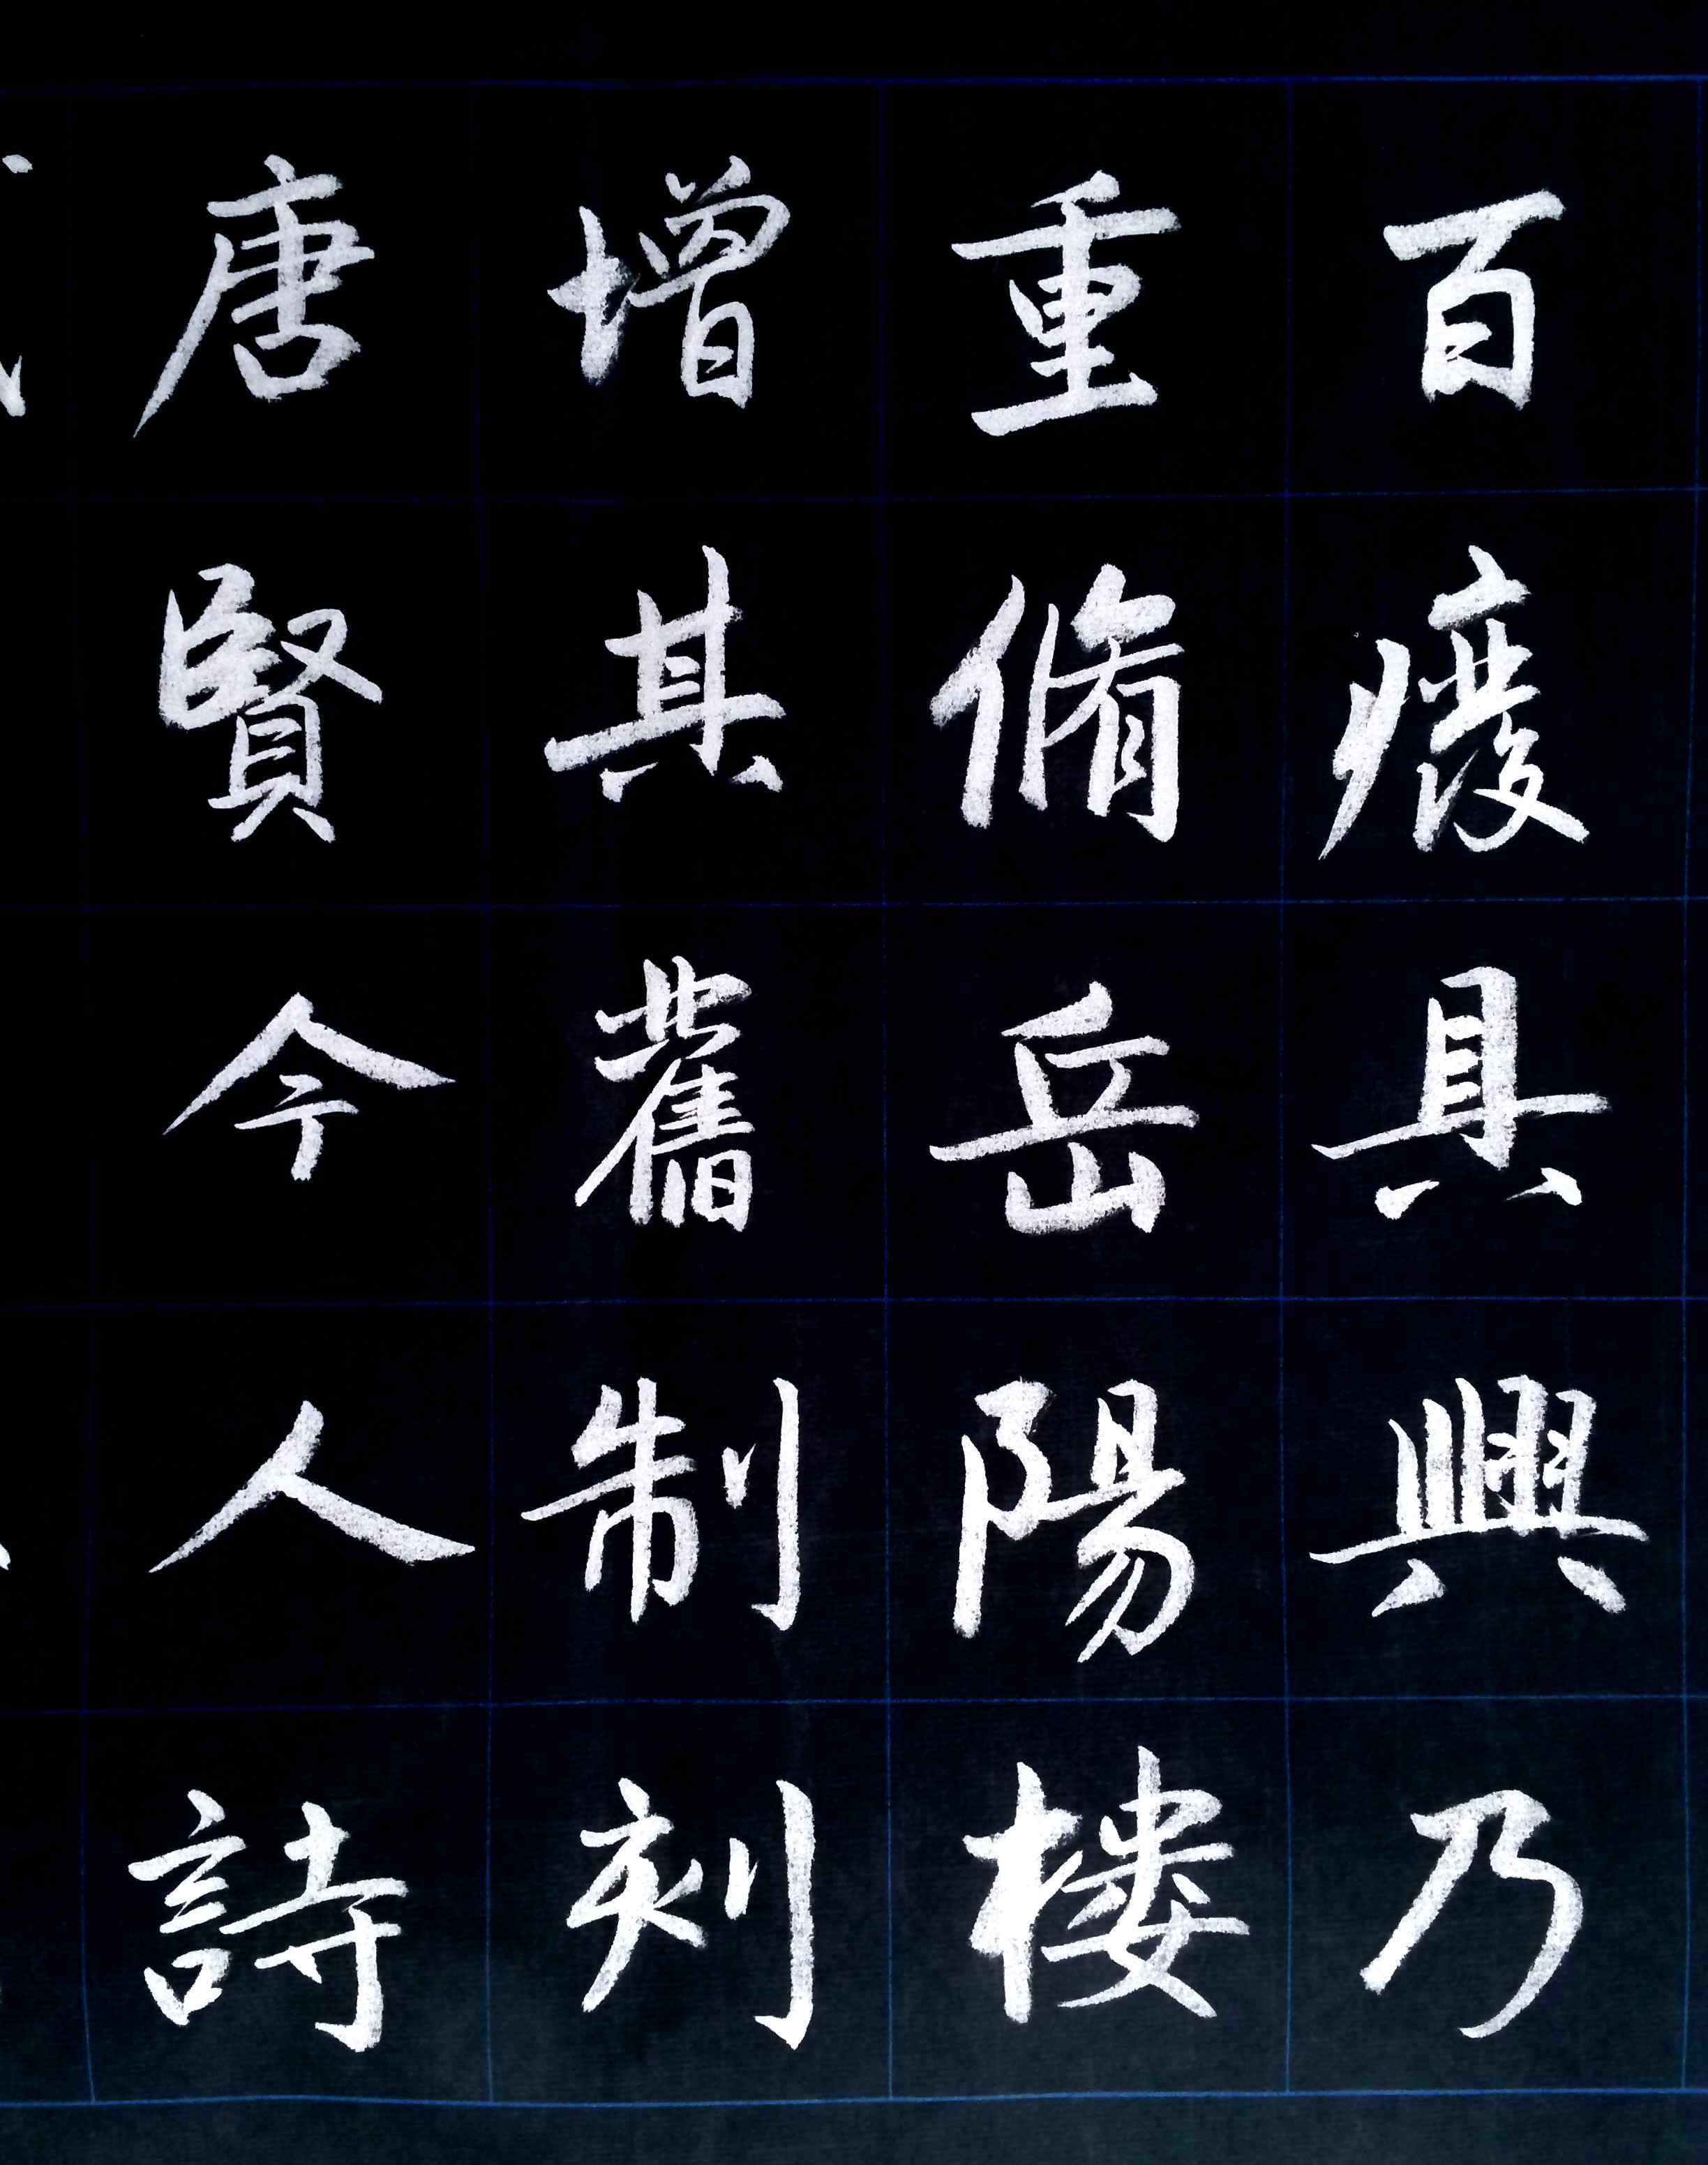 百癈具興乃
重脩岳陽樓
增其舊制刻
唐賢今人詩